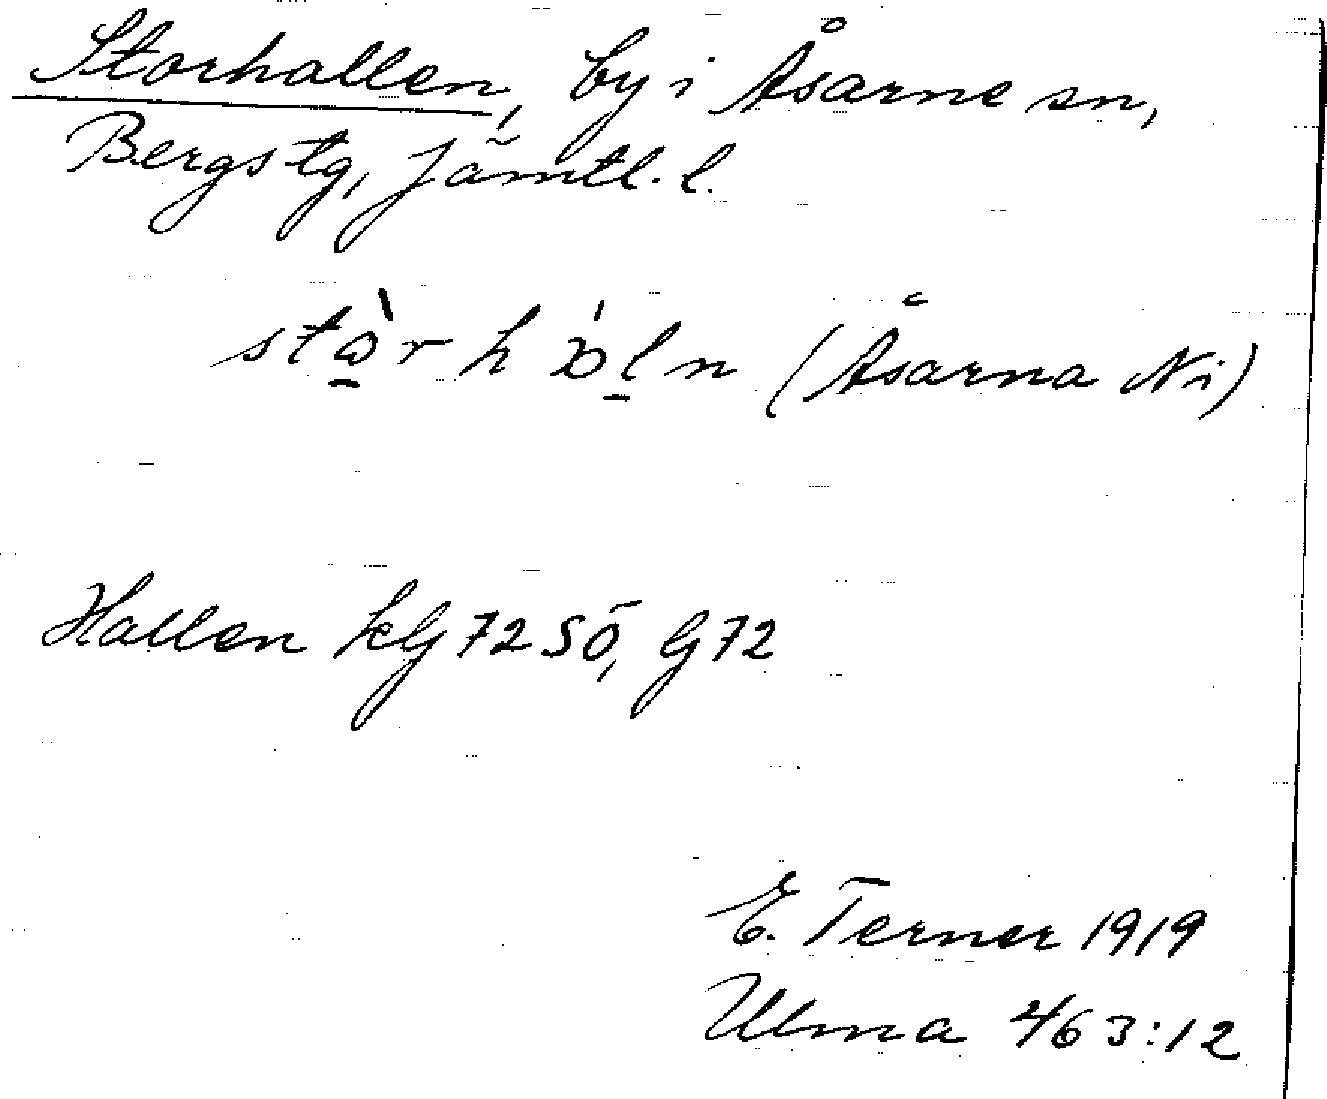 Storhallen, by i Åsarne sn,
Bergs tg, Jämtl. l.
(Åsarna Ni)
Hallen kG 72 SÖ, G 72
E. Terner 1919
Ulma 463:12